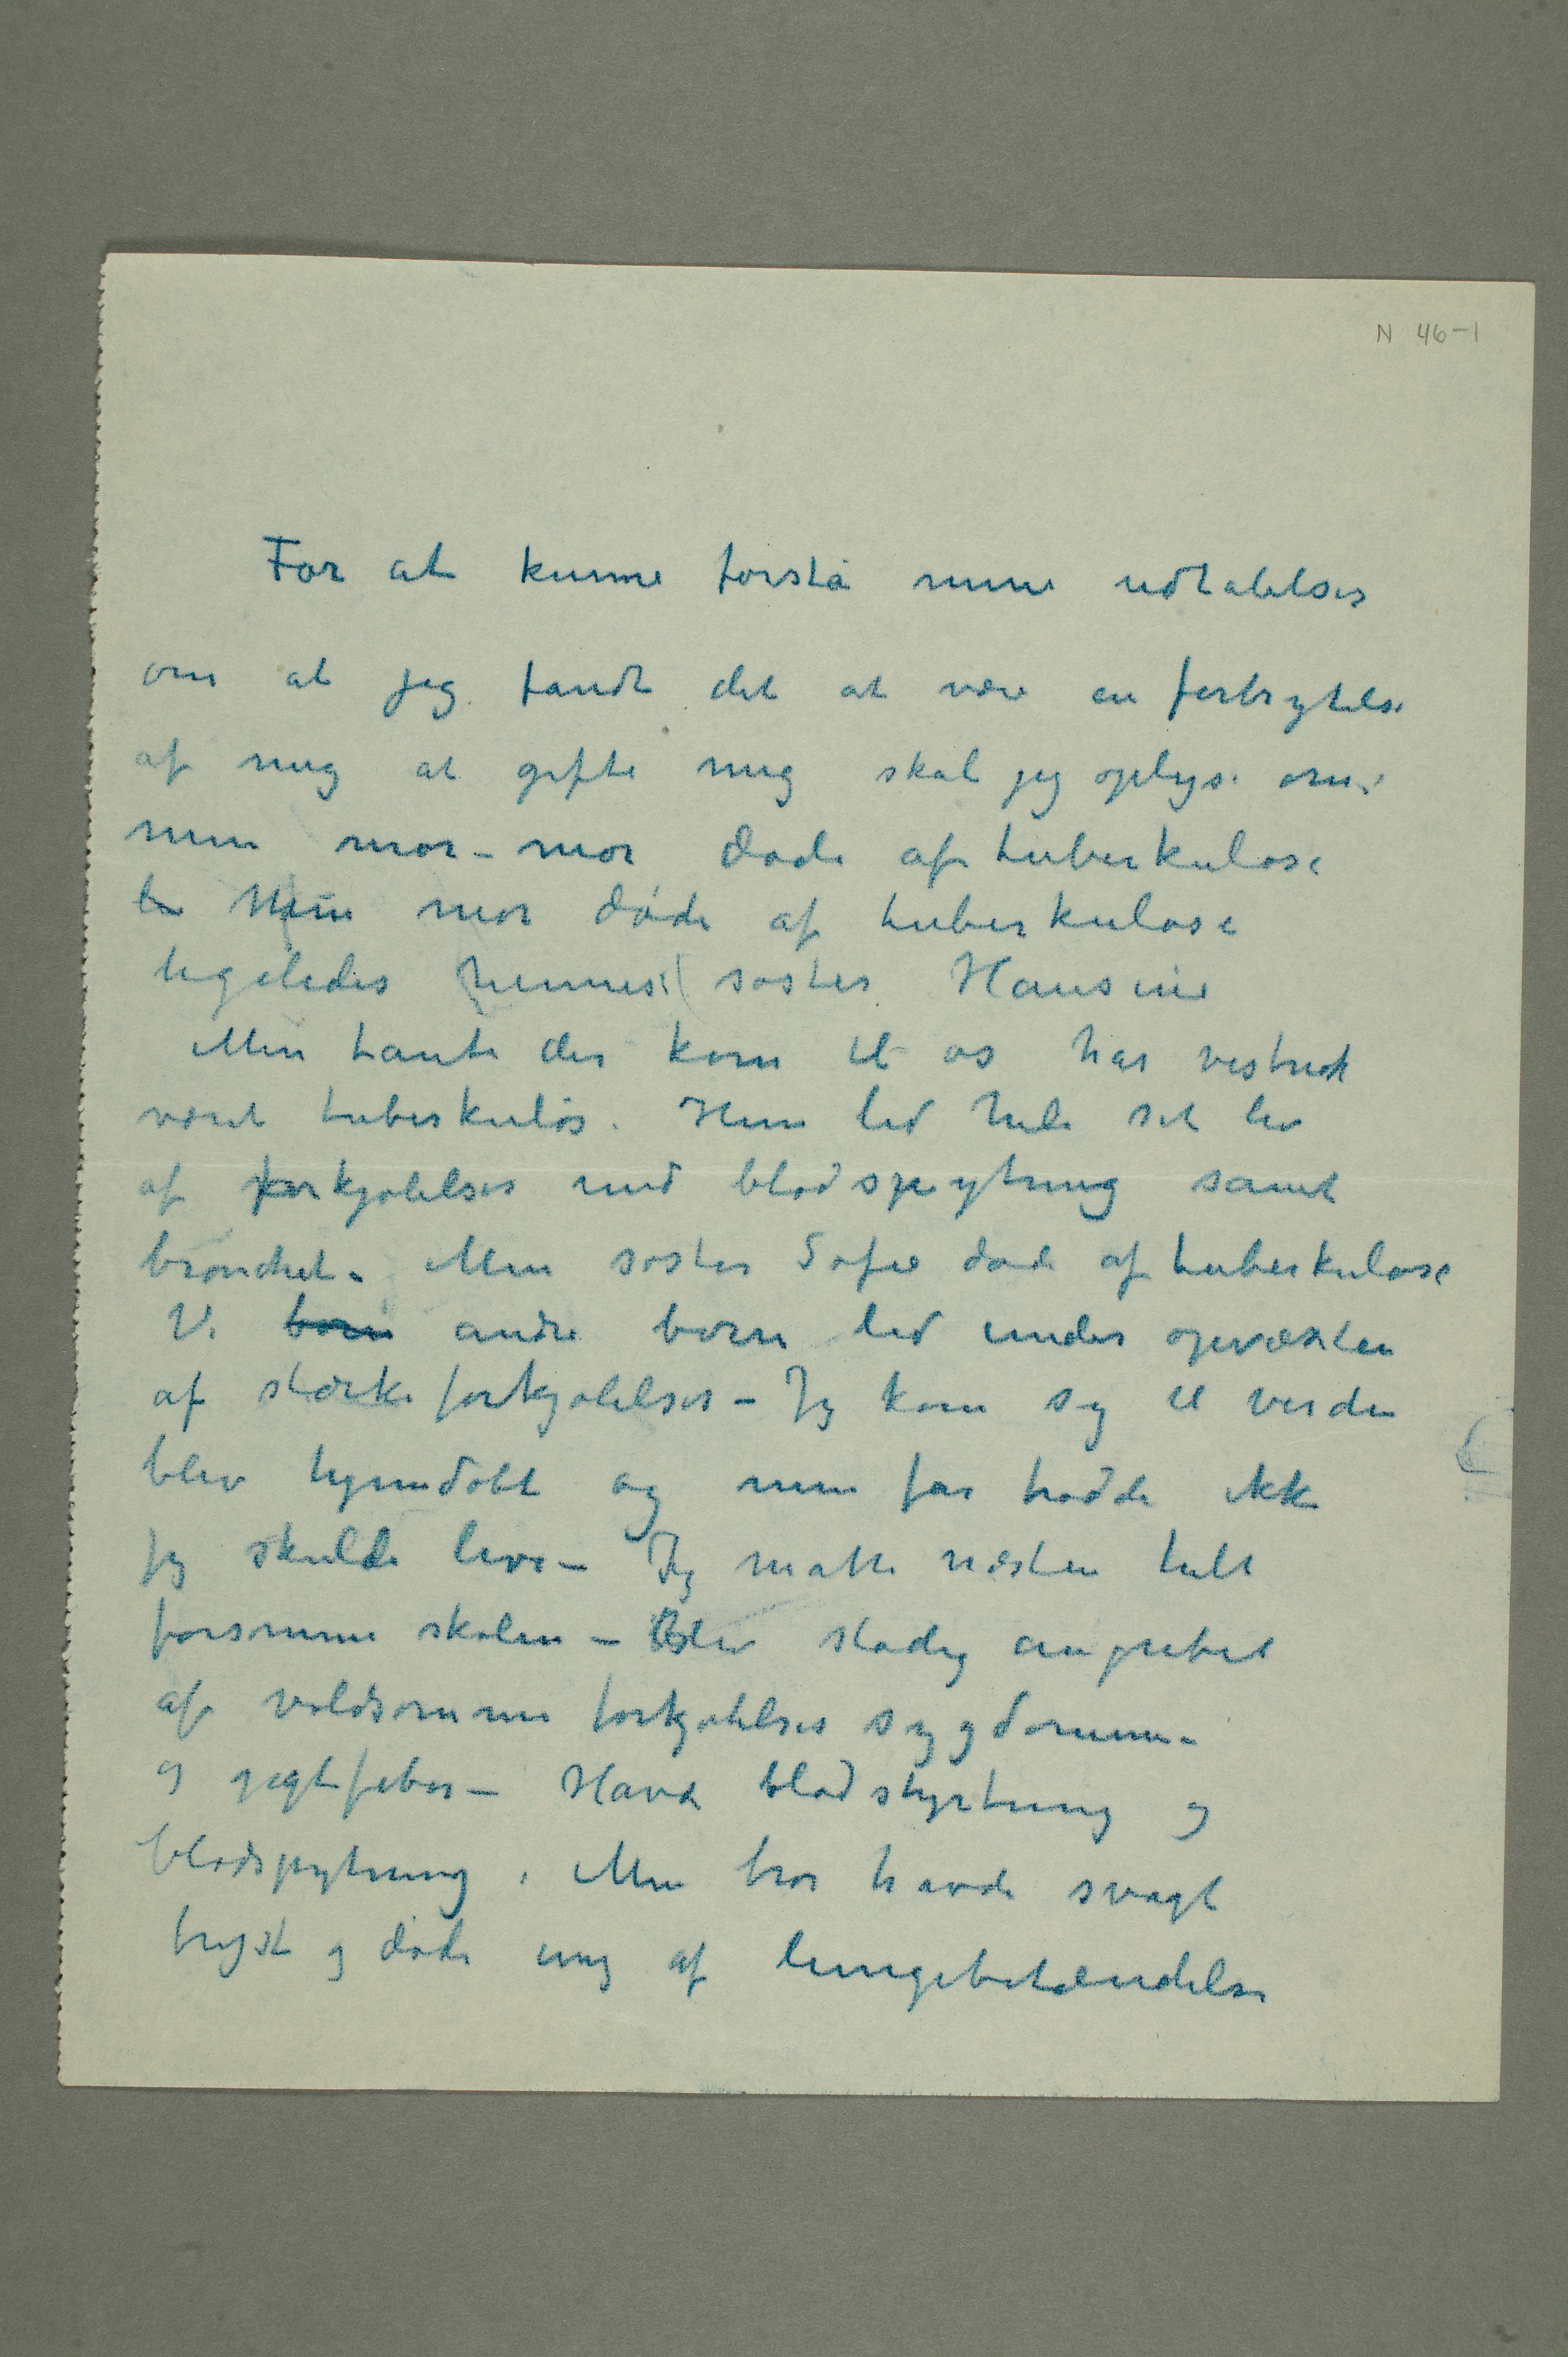 N 46-1
For at kunne forstå mine udtalelser
om at jeg fandt det at være en forbrytelse
af mig at gifte mig skal jeg oplyse om:
min mor-mor døde af tuberkulose
Min mor døde af tuberkulose
ligeledes (hennes) søster Hansine
Min tante der kom til os har vistnok
været tuberkuløs. Hun led hele sit liv
af forkjølelser med blodspytning samt
bronchit. Min søster Sofie døde af tuberkulose
Vi børn andre børn led under opvæxten
af stærke forkjølelser – Jeg kom syg til verden
blev hjemdøbt og min far trodde ikke
jeg skulde leve – Jeg måtte næsten helt
forsømme skolen – Blev stadig angrebet
af voldsomme forkjølelses sygdomme
og gigtfeber – Havde blodstyrtning og
blodspytning. Min bror havde svagt
bryst og døde ung af lungebetændelse